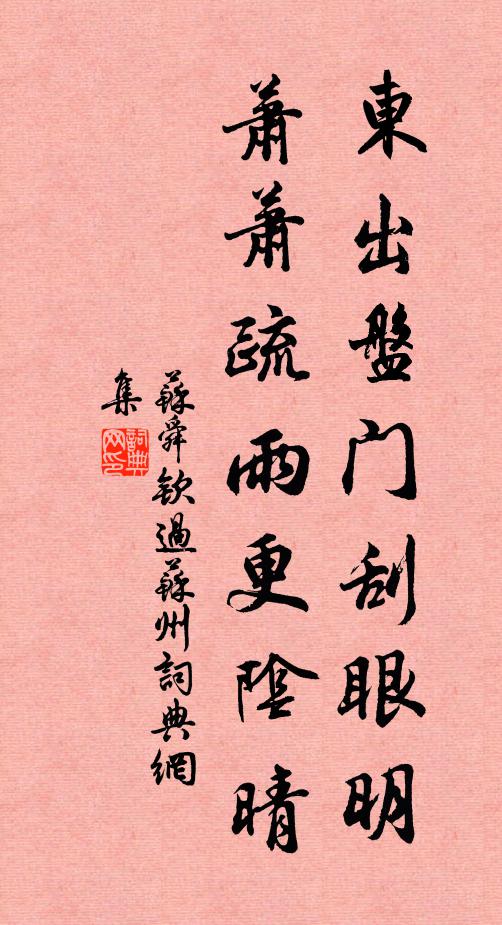 東出盤门刮眼明
蕭蕭疏雨更陰晴
蘇舜欽過蘇州詞典網
集
詞典
网印